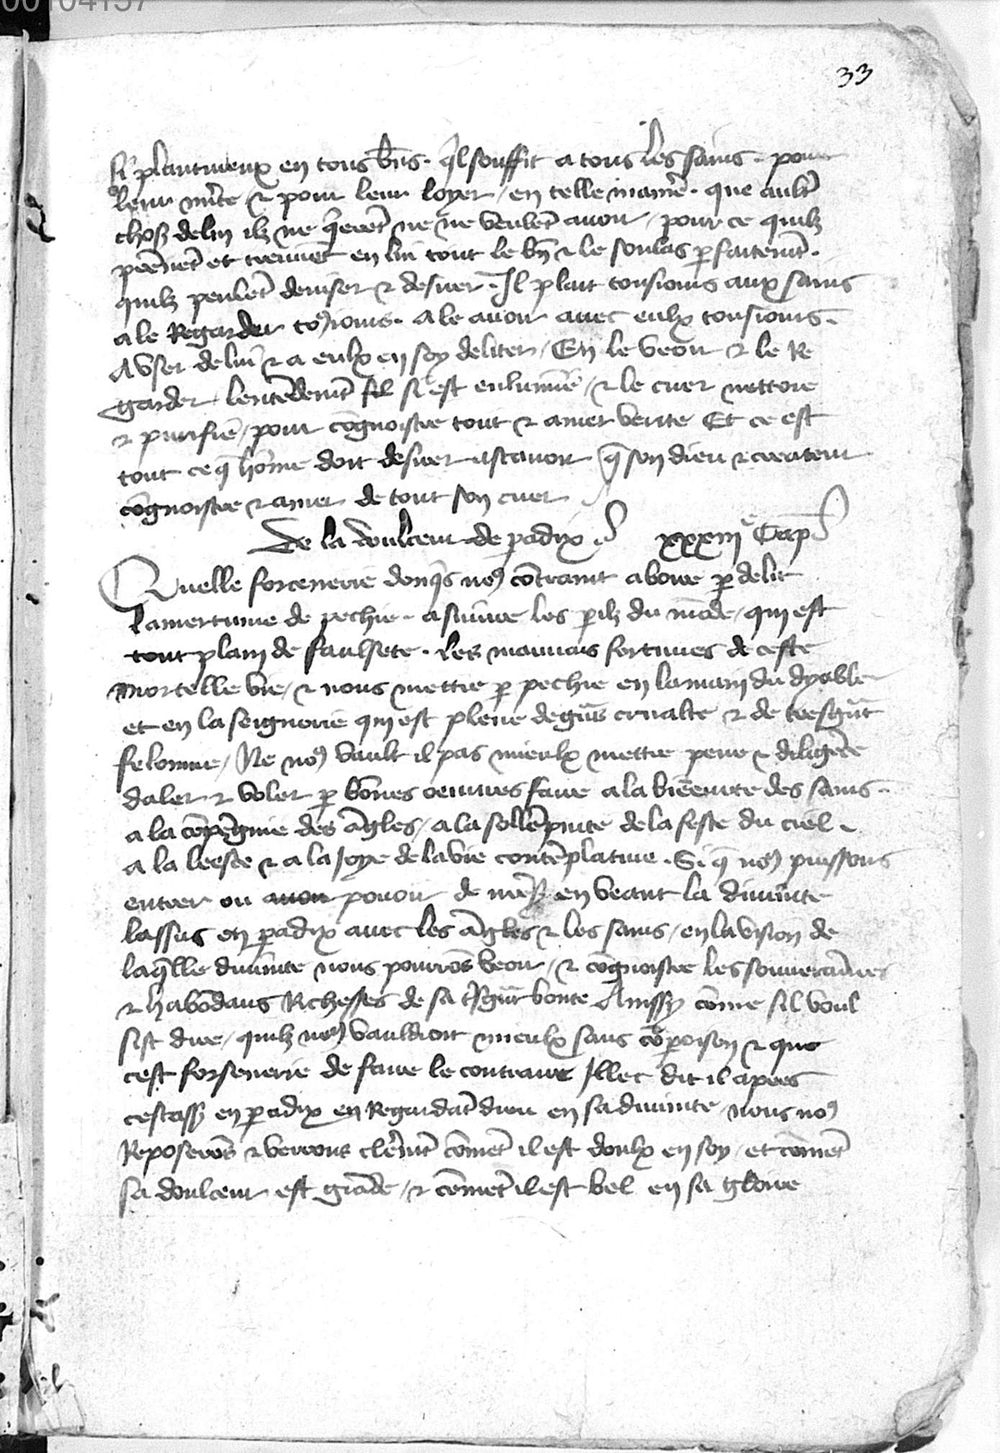 00104157
33
si plantureux en tous bñs. q̃l souffit a tous les sains. pour
leur mite & pour leur loyer / en telle maniẽ. que aultr̃
chose de luy ilz ne q̃erẽt ne ne veulẽt auoir / pour ce quilz
prẽnẽt et treuuẽt en lui tout le bñ & le soulas p̱faitemẽt.
quilz peulẽt deuiser & desirer. Il plait tousiours aux sains
a le Regarder to9iours. a le auoir auec eulx tousiours.
A vser de lui & a eulx en soy deliter / En le veoir & le Re
garder lentẽdemẽt fil si est enlumine / & le cuer nettoie
& purifie / pour cõgnoistre tout & amer verite Et ce est
tout ce q̃ hõme doit desirer assauoir q̃ son dieu & createur
cõgnoistre & amer de tout son cuer
De la doulceur de p̱adix xxxiije Cap
Quelle forcenerie donq̃s no9 cõtraint a boire p̱ delit
lamertume de pechie. a suiure les p̱ilz du mõde / qui est
tout plain de faulsete. les mauuais fortunes de ceste
mortelle vie / & nous mettre p̱ pechie en la main du dyable
et en la seignorie qui est pleine de grãs crualte & de tresgrãt
felonnie / Ne no9 vault il pas mieulx mettre peine & diligẽce
daler & voler p̱ bõnes oeuures faire a la bieneurte des sains.
a la cõpẽgnie des ãgles / a la sollẽpnite de la feste du ciel.
a la leesse & a la Joye de la vie contẽplatiue. Si q̃ no9 puissons
entrer ou auoir pouoir de en veant la diuinite
lassus en p̱adix auec les ãgles & les sains / en la vision de
laq̃lle diuinite nous pourrõs veoir / & cõgnoistre les souueraines
& habõdans Richesses de sa tresgrãt bonte Ainssy cõme sil voul
sist dire / quilz no9 vauldroit mieulx sans cõp̱oison & que
cest forsenerie de faire le contraire Illec dit il apres
cestassr en p̱adix en Regardãt dieu en sa diuinite / nous no9
Reposerõs & verrons cleremẽt cõmẽt il est doulx en soy / et cõmẽt
sa doulceur est grãde / & cõmẽt il est bel en sa gloire